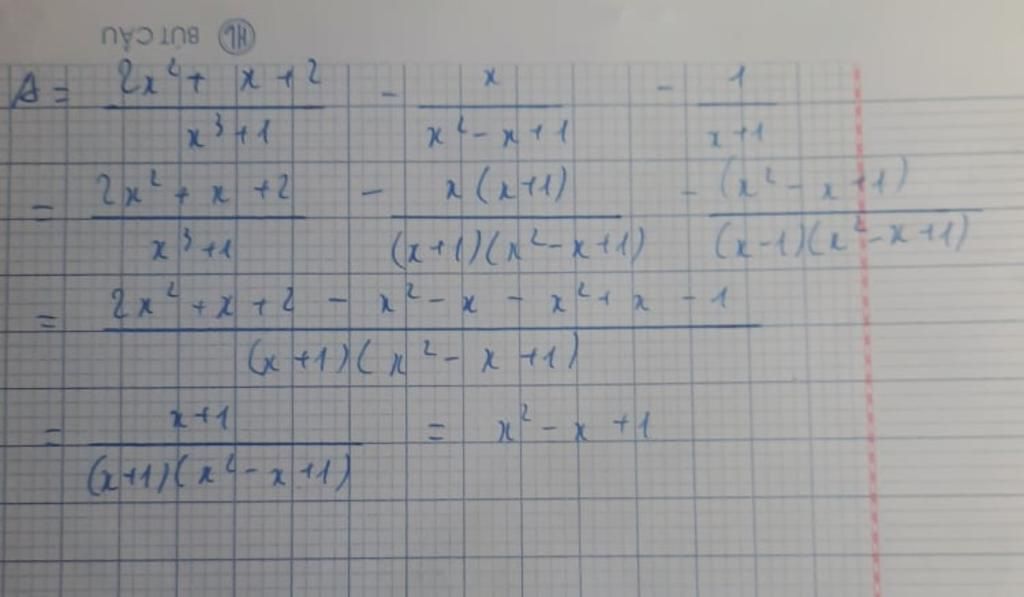 BÚT CẬU HL
A = (2x² + x + 2)/(x³ + 1) - x/(x² - x + 1) - 1/(x + 1)
= (2x² + x + 2)/(x³ + 1) - x(x + 1)/((x + 1)(x² - x + 1)) - (x² - x + 1)/((x - 1)(x² - x + 1))
= (2x² + x + 2 - x² - x - x² + x - 1)/((x + 1)(x² - x + 1))
= (x + 1)/((x + 1)(x² - x + 1)) = x² - x + 1